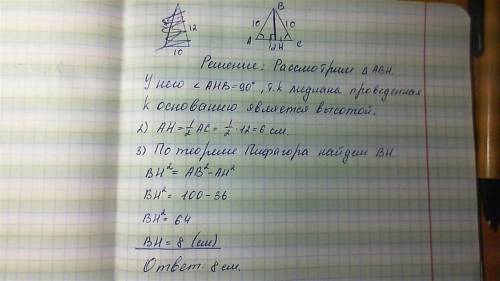 12
10
B
10 10
A 12 H C
Решение: Рассмотрим △ ABH.
У него ∠AHB=90°, т.к медиана проведенная
к основанию является высотой.
2) AH=½ AC= ½ · 12=6 см.
3) По теореме Пифагора найдем BH.
BH²= AB²-AH²
BH²= 100-36
BH²= 64
BH= 8 (см)
Ответ: 8 см.